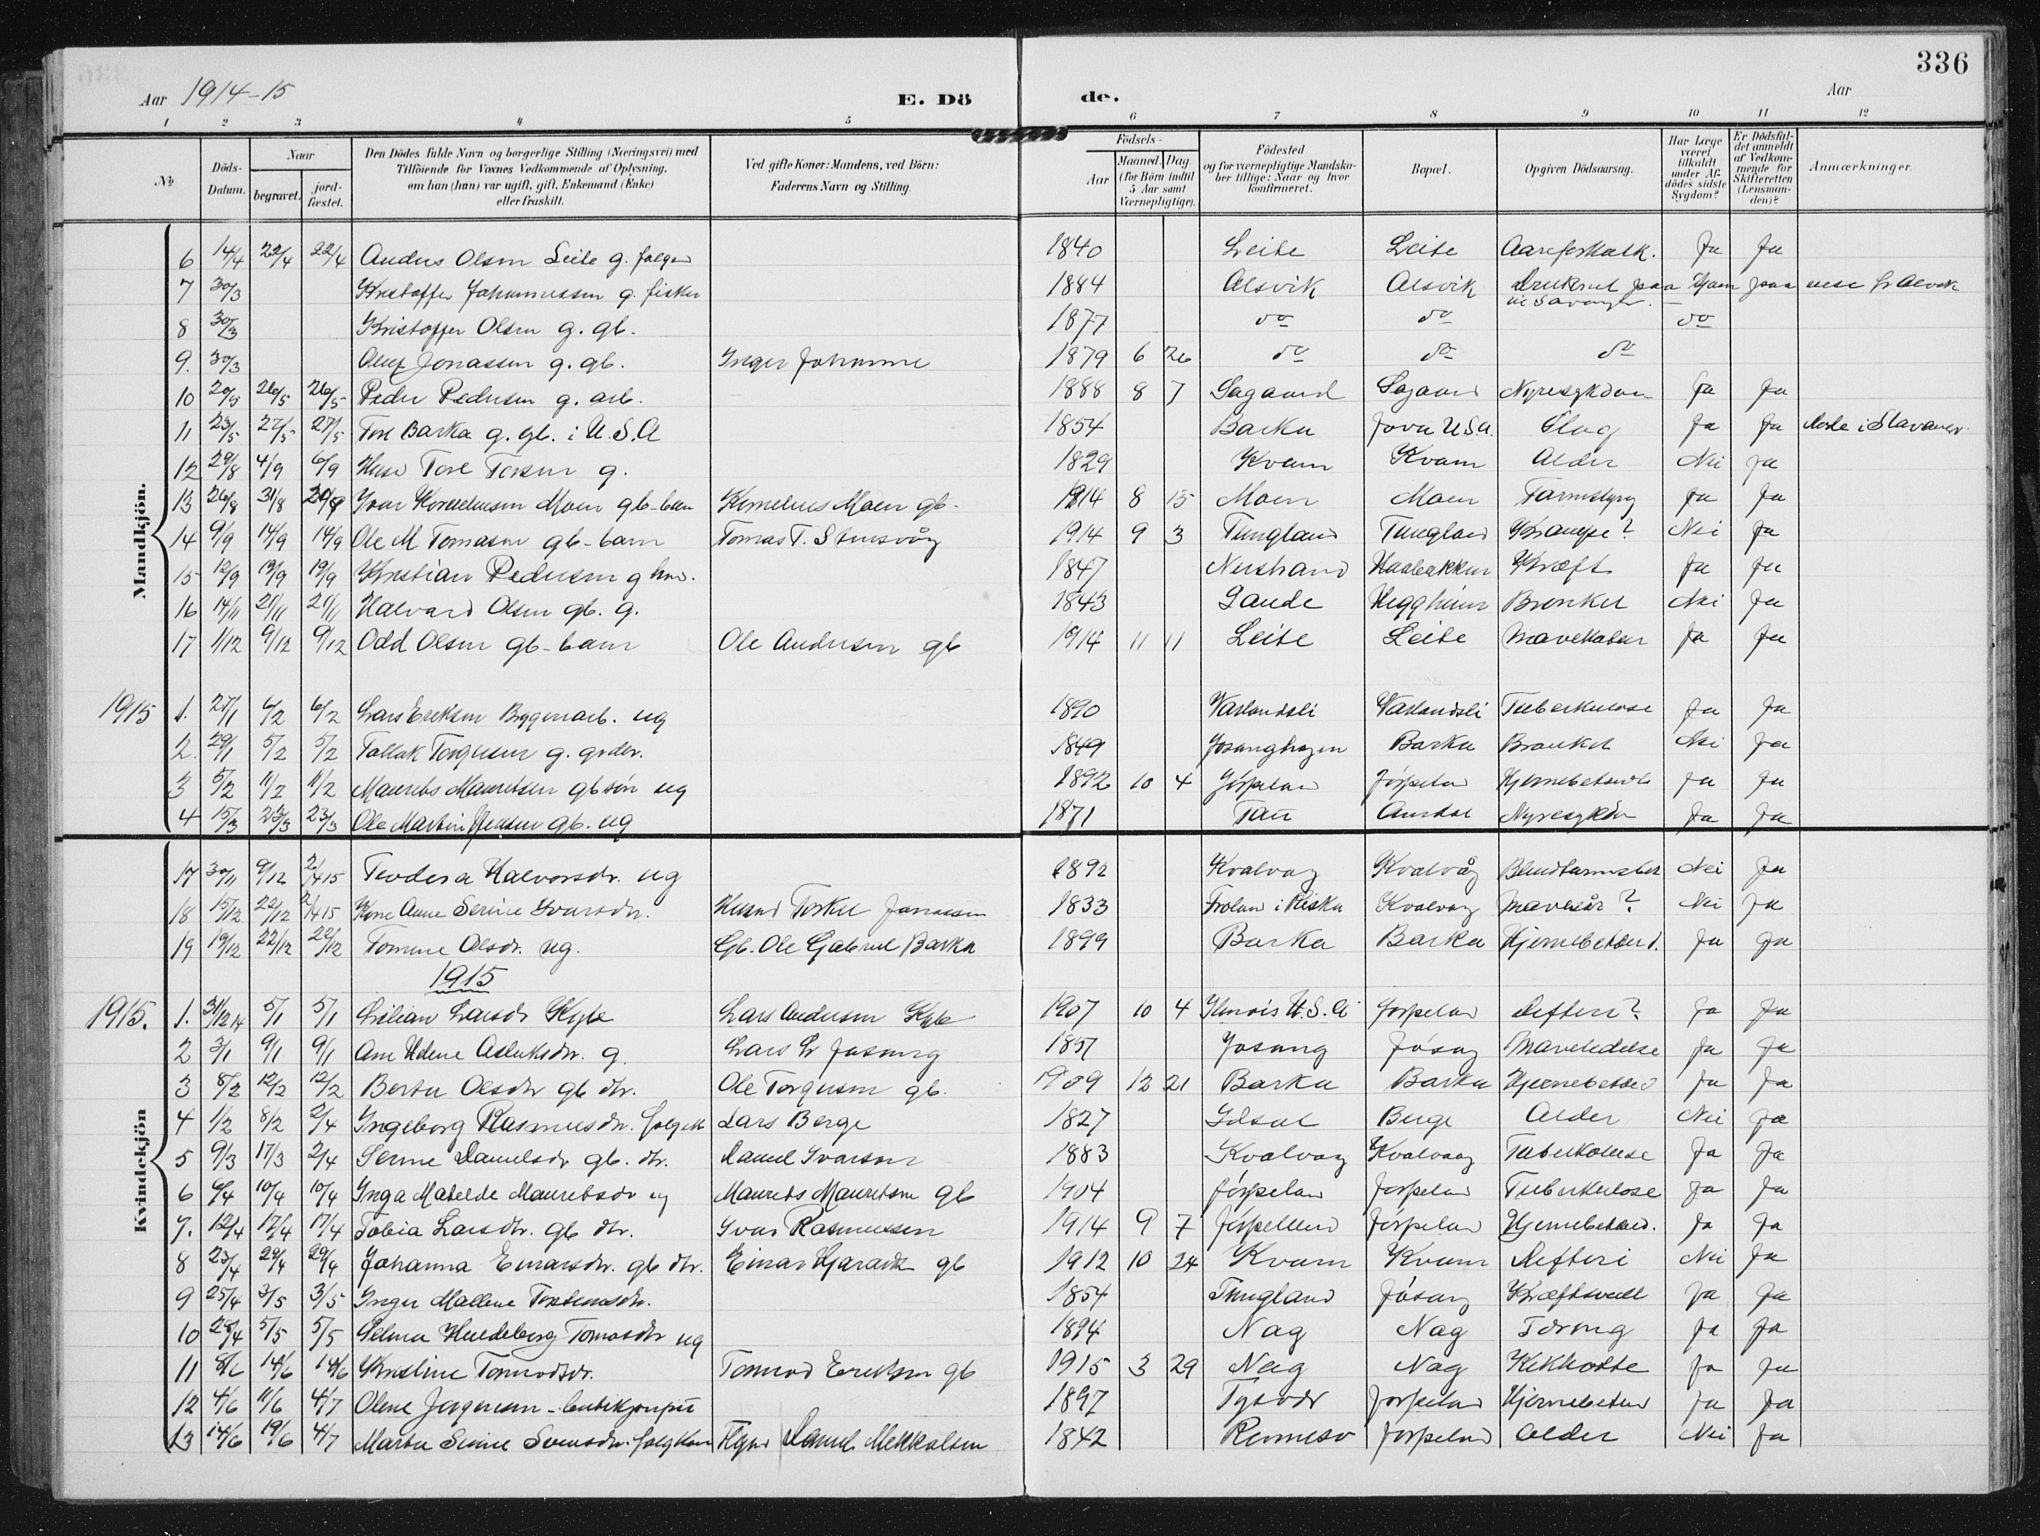 336
Aar 1914-15 E. Dö de. Aar
1 2 3 4 5 6 7 8 9 10 11 12
№ Döds-Datum. Naar begravet. jordfæstet. Den Dödes fulde Navn og borgerlige Stilling (Næringsvei) med Tilföiende for Voxnes Vedkommende af Oplysning, om han (hun) var ugift, gift, Enkemand (Enke) eller fraskilt. Ved gifte Koner: Mandens, ved Börn: Faderens Navn og Stilling. Födsels- Aar Maaned. Dag. (for Börn indtil 5 Aar samt Værnepligtige). Födested og for værnepligtige Mandskaber tillige: Naar og hvor konfirmeret. Bopæl. Opgiven Dödsaarsag. Har Læge været tilkaldt under Afdödes sidste Sygdom? Er Dödsfaldet anmeldt af Vedkommende for Skifteretten (Lensmanden)? Anmærkninger.
Mandkjön.
6 14/4 22/4 22/4 Anders Olsen Leite g. 1840 Leite Leite Aareforkalk. Ja Ja
7 30/3 Kristoffer Johannessen g. fisker 1884 Alsvik Alsvik
8 30/3 Kristoffer Olsen g. gb. 1877 do do do
9. 30/3 Jonassen g. gb. Inger Johanne 1879 6 26 do do do
10 20/5 26/5 26/5 Peder Pedersen g. arb. 1888 8 7 Sagaard Sagaard Nyresykdom Ja Ja
11 23/5 27/5 27/5 Tore Barka g. gb. i U.S.A 1854 Barka Jova U.S.A. Slag Ja Ja
12 29/8 4/9 6/9 Tore g. 1829 Kvam Kvam Alder Nei Ja
13 26/8 31/8 Ivar Kornelinsen Moen gb-barn Kornelius Moen gb. 1914 8 15 Moen Moen Ja Ja
14 9/9 14/9 14/9 Ole M Tomasen gb-barn Tomas T. 1914 9 3 Tungland Tungland Krampe? Nei Ja
15 12/9 19/9 19/9 Kristian Pedersen g 1847 Nerstrand Kræft Ja Ja
16 14/11 21/11 21/11 Halvard Olsen gb. g. 1843 Sande Heggheim Bronkit Nei Ja
17 1/12 9/12 9/12 Odd Olsen gb-barn Ole Andersen gb 1914 11 11 Leite Leite Mavekatar Ja Ja
1915 1. 27/1 6/2 6/2 Lars Eriksen Bryggearb. ug 1890 Varlandsli Varlandsli Tuberkulose Ja Ja
2. 29/1 5/2 5/2 Tollak Torgersen g. 1849 Barka Bronkit Nei Ja
3 5/2 11/2 11/2 Maurits Mauritsen gb sön ug 1892 10 4 Jörpeland Jörpeland Ja Ja
4 15/3 23/3 23/3 Ole Martin Jensen gb. ug 1871 Tau Nyresykdm Ja Ja
Kvindekjön
17 30/11 9/12 2/4 15 Teodora Halvorsdr. ug 1892 Kvalvag Kvalvåg Nei Ja
18 15/12 22/12 2/4 15 Kone Anne Serine Ivarsdr. Husmd Torkel Jonassen 1833 Kvalvag Mavesår? Nei Ja
19 19/12 22/12 22/12 Tomine Olsdr. ug. Gb. Ole Gabriel Barka 1899 Barka Barka Hjernebetænd. Ja Ja
1915
1915. 1. 31/12 14 5/1 5/1 Lilian Larsdr Lars Andersen 1907 10 4 Ilinois U.S.A Jörpeland Difteri? Ja Ja
2 3/1 9/1 9/1 Ane Helene Aslaksdr. g. Lars L Jøsang 1857 Jøsang Jösang Maveledelse Ja Ja
3 8/2 12/2 12/2 Berta Olsdr gb dtr. Ole Torgersen gb. 1909 12 21 Barka Barka Hjernebetænd Ja Ja
4 1/2 8/2 2/4 Ingeborg Rasmusdr. Lars Berge 1827 Idsal Berge Alder Nei Ja
5 9/3 17/3 2/4 Serine Danielsdr gb. dtr. Daniel Ivarson 1883 Kvalvag Kvalvaag Tuberkulose Ja Ja
6 10/4 10/4 Inga Matilde Mauritsdr ug Maurits Mauritsen gb 1904 Jörpeland Jörpeland Tuberkulose Ja Ja
7. 12/4 17/4 17/4 Tobia Larsdtr. gb dtr. Ivar Rasmussen 1914 9 7 Jörpeland Jörpeland Hjernebetænd. Ja Ja
8 23/4 29/4 29/4 Johanna Einarsdr. gb dtr. Einar gb 1912 10 24 Kvam Kvam Difteri Nei Ja
9 25/4 3/5 3/5 Inger Mallene 1854 Tungland Jösang Ja Ja
10 28/4 5/5 5/5 Selma Hildeborg Tomasdtr ug 1894 Nag Nag Tæring Ja Ja
11 8/6 14/6 14/6 Kristine Tormodsdr. Tormod Eriksen gb 1915 3 29 Nag Nag Kikhoste Ja Ja
12 4/6 11/6 4/7 Olene Jørgensen - butikjomfru 1897 Tysvær Jørpeland Hjernebetænd Ja Ja
13 14/6 19/6 4/7 Marta Serine Svensdr. Daniel Mikkalsen 1842 Rennesø Jørpeland Alder Nei Ja